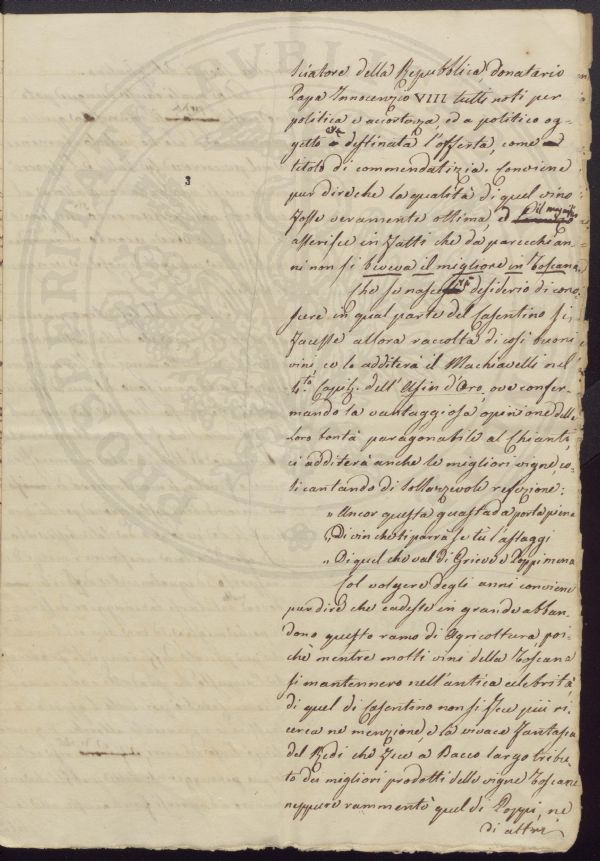 sciatore della Repubblica, donatario
Papa Innocenzio VIII tutti noti per
politica e accortezza, ed a politico og-
getto destinata l'offerta, come
titolo di commendatizia. Conviene
pur dire che la qualità di quel vino
fosse veramente ottima, e
asserisce in fatti che da parecchi an-
ni non si beveva il migliore in Toscana.
Che se nascesse desiderio di cono-
scere in qual parte del Casentino si
facesse allora raccolta di così buoni
vini, ce lo additerà il Machiavelli nel
4.to Capit. dell'Asin d'Oro, ove confer-
mando la vantaggiosa opinione della
loro bontà paragonabile al Chianti,
ci additerà anche le migliori vigne, co-
sì cantando di sollazzevole refezione:
„ Ancor questa guastada porta piena
„ Di vin che ti parrà se tu l'assaggi
„ Di quel che val di Grieve e Poppi mena
Col volgere degli anni conviene
pur dire che cadesse in grande abban-
dono questo ramo di Agricoltura, poi-
chè mentre molti vini della Toscana
si mantennero nell'antica celebrità,
di quel di Casentino non si fece più ri-
cerca nè menzione, e la vivace fantasia
del Redi che fece a Bacco largo tribu-
to dei migliori prodotti delle vigne Toscane
neppure rammentò quel di Poppi, nè
di altri